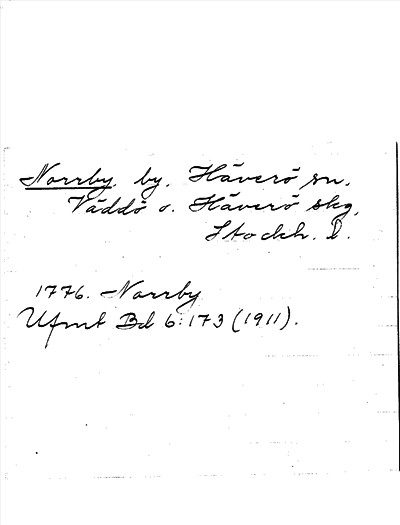 Norrby, by, Häverö sn,
Väddö o. Häverö skg,
Stockh. l.
1776. Norrby
Ufmt Bd 6:173 (1911).